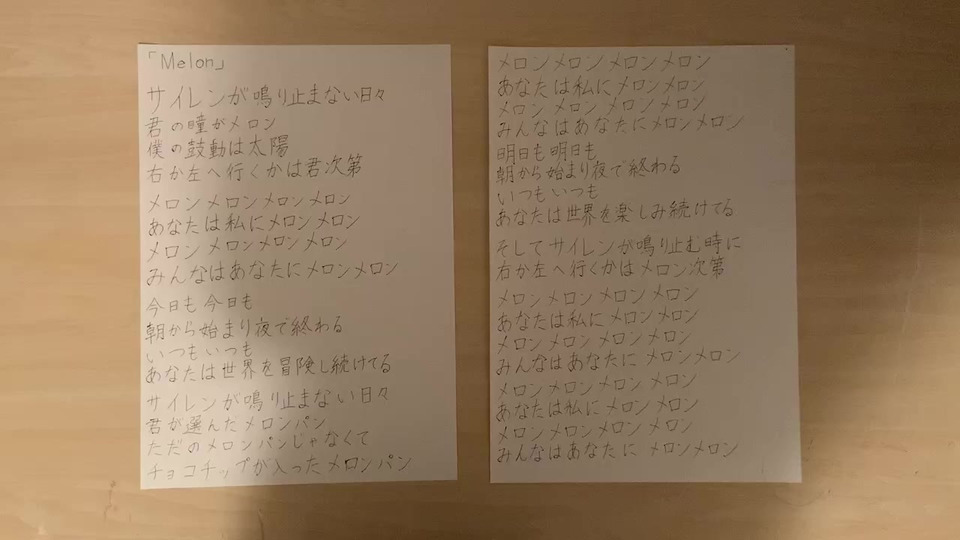 「Melon」
サイレンが鳴り止まない日々
君の瞳がメロン
僕の鼓動は太陽
右か左へ行くかは君次第
メロン メロン メロン メロン
あなたは私にメロンメロン
メロン メロンメロン メロン
みんなはあなたにメロンメロン
今日も 今日も
朝から始まり夜で終わる
いつもいつも
あなたは世界を冒険し続けてる
サイレンが鳴り止まない日々
君が選んだメロンパン
ただのメロンパンじゃなくて
チョコチップが入ったメロンパン
メロン メロン メロン メロン
あなたは私にメロンメロン
メロン メロン メロン メロン
みんなはあなたにメロンメロン
明日も 明日も
朝から始まり夜で終わる
いつもいつも
あなたは世界を楽しみ続けてる
そしてサイレンが鳴り止む時に
右か左へ行くかはメロン次第
メロン メロン メロン メロン
あなたは私に メロン メロン
メロン メロン メロン メロン
みんなはあなたに メロンメロン
メロン メロン メロン メロン
あなたは私に メロン メロン
メロン メロン メロン メロン
みんなはあなたに メロンメロン